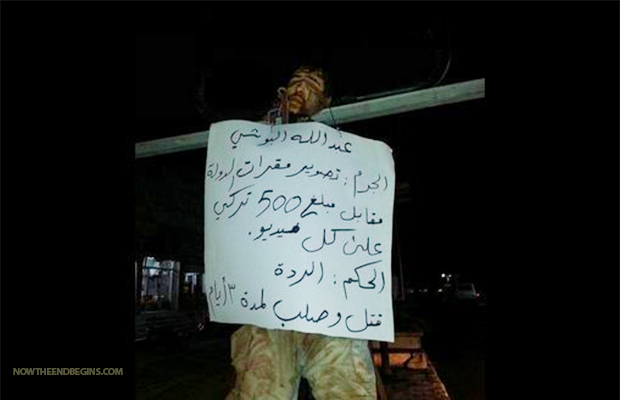 عبدالله البوشي
الجرم : تصوير مقرات الدولة
مقابل مبلغ 500 تركي
على كل فيديو.
الحكم : الردة
قتل وصلب لمدة ٣ أيام
NOWTHEENDBEGINS.COM